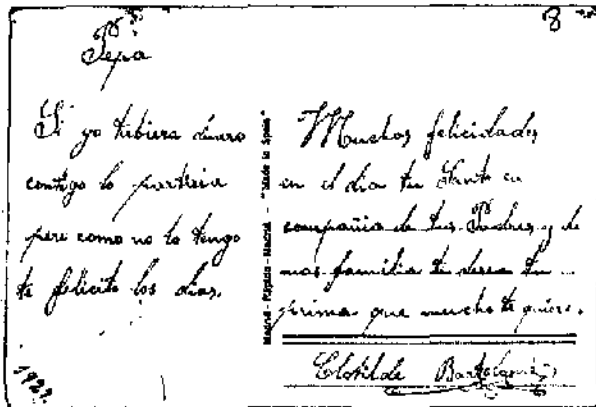 8
Srta:
Pepa
Si yo tubiera dinero
contigo lo partiria
pero como no lo tengo
te felicito los dias.
1929.
Madrid - "Made in Spain"
Muchas felicidades
en el dia tu Santo en
compañia de tus Padres y de
mas familia te desea tu
prima que mucho te quiere.
Clotilde